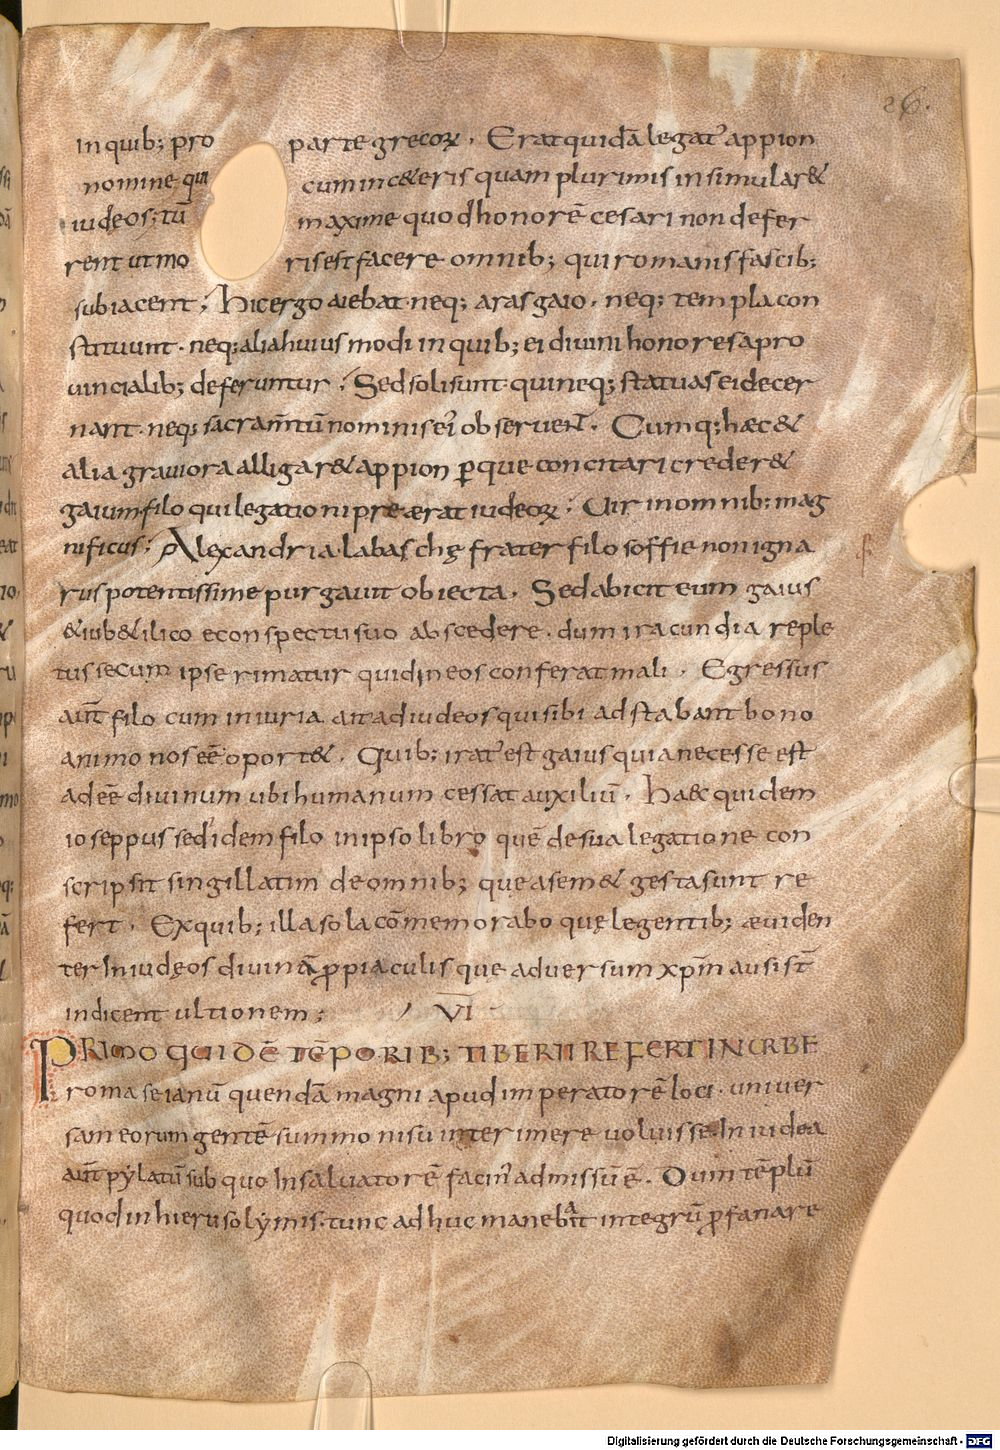 26.
inquib; pro parte grecoꝝ. Erat quidā legatꝰ appion
nomine qui cum inc&eris quam plurimis insimular&
iudeos; tū maxime quod honorē cesari non defer
rent ut mo ris est facere omnib; qui romanis fascib;
subiacent; Hic ergo aiebat neq; aras gaio. neq; templa con
stituunt. neq; alia huius modi in quib; ei divini honores a pro
vincialib; deferuntur; Sed soli sunt qui neq; statuas ei decer
nant. neq; sacram̄tū nominis ei observen̄t. Cumq; hæc &
alia graviora alligar& appion ꝑque concitari creder&
gaium filo qui legationi preærat iudeoꝝ; Vir in omnib; mag
nificus; Alexandria labaschę frater filosoffie non igna
rus potentissime purgavit obiecta. Sed abicit eum gaius
& iub& ilico e conspectu suo abscedere. dum iracundia reple
tus secum ipse rimatur quid in eos conferat mali. Egressus
aut̄ filo cum iniuria ait ad iudeos qui sibi adstabant bono
animo nos eē oport&. Quib; iratꝰ est gaius quia necesse est
adeē divinum ubi humanum cessat auxiliū. Haec quidem
ioseppus sed idem filo in ipso libro quē de sua legatione con
scripsit singillatim de omnib; que a sem& gesta sunt re
fert. Ex quib; illa sola cōmemorabo quę legentib; æviden
ter In iudęos divinā ꝓ piaculis que adversum xp̄m ausi st̄
indicent ultionem; VI
PRIMO QUIDĒ TĒPORIB; TIBERII REFERT IN URBE
roma seianū quendā magni apud imperatorē loci. univer
sam eorum gentē summo nisu interimere voluisse. In iudea
aut̄ pylatū sub quo In salvatorē facinꝰ admissū ē. Dum tēplū
quod in hierusolymis. tunc adhuc manebat integrū ꝓfanare
Digitalisierung gefördert durch die Deutsche Forschungsgemeinschaft - DFG